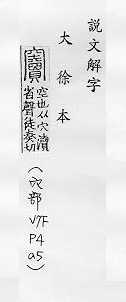 說文解字
大徐本
竇
空也从穴瀆
省聲徒奏切
（穴部 V7F P4 a5）